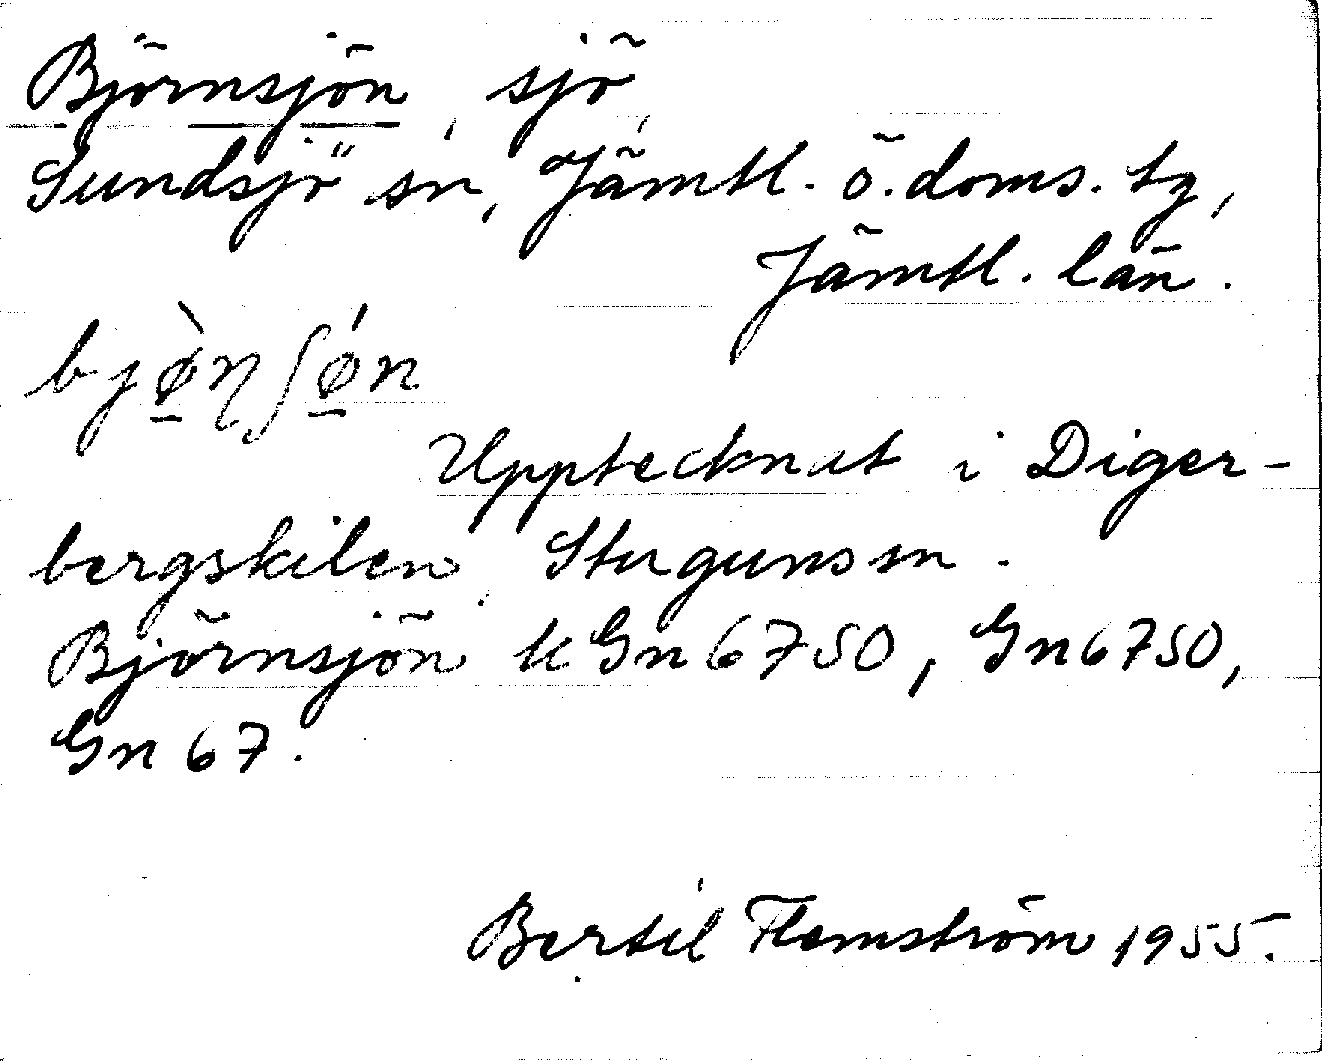 Björnsjön, sjö,
Sundsjö sn, Jämtl. ö. doms. tg,
Jämtl. län.
bjø̠̀nʃǿ̠n
Upptecknat i Diger-
bergskilen, Stuguns sn.
Björnsjön k Gn 6750, Gn 6750,
Gn 67.
Bertil Flemström 1955.